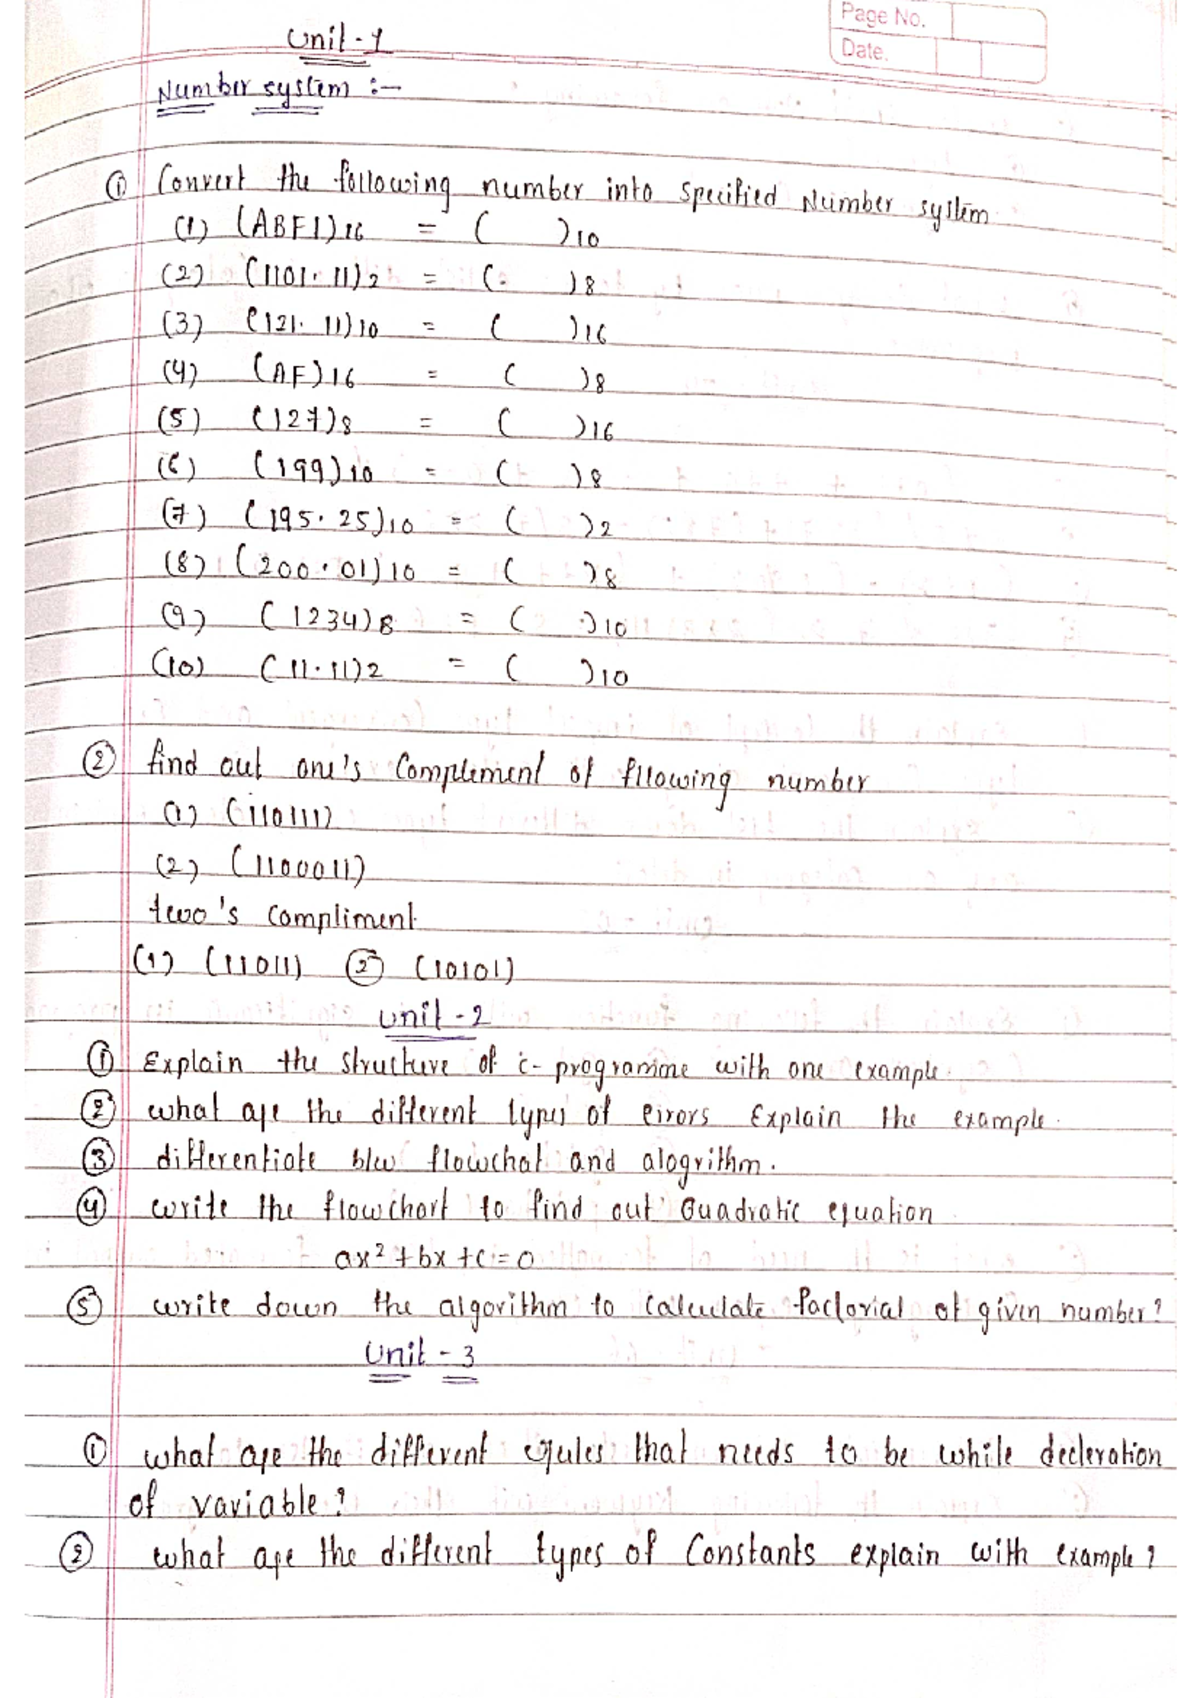 Page No.
Date.
Unit-1
Number system :-
① Convert the following number into specified Number system
(1) (ABF1)16 = ( )10
(2) (1101.11)2 = ( )8
(3) (121.11)10 = ( )16
(4) (AF)16 = ( )8
(5) (127)8 = ( )16
(6) (199)10 = ( )8
(7) (195.25)10 = ( )2
(8) (200.01)10 = ( )8
(9) (1234)8 = ( )10
(10) (11.11)2 = ( )10
② find out one's Complement of fllowing number
(1) (110111)
(2) (1100011)
two's compliment
(1) (11011) ② (10101)
unit-2
① Explain the structure of c-programme with one example.
② what are the different types of errors Explain the example.
③ differentiate b/w flowchat and alogrithm.
④ write the flowchart to find out Quadratic equation
ax²+bx+c=0
⑤ write down the algorithm to calculate factorial of given number?
Unit-3
① what are the different rules that needs to be while decleration
of variable?
② what are the different types of Constants explain with example?